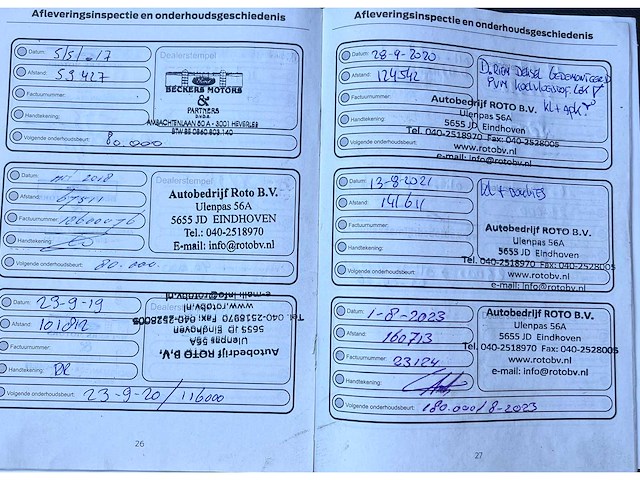 Afleveringsinspectie en onderhoudsgeschiedenis
Datum: 5/5/.17
Afstand: 59427
Factuurnummer:
Handtekening:
Volgende onderhoudsbeurt: 80.000
Dealerstempel
BECKERS MOTORS
&
PARTNERS
AMBACHTENLAAN 60 A - 3001 HEVERLEE
Datum: 2018
Afstand:
Factuurnummer:
Handtekening:
Volgende onderhoudsbeurt: 80.000
Dealerstempel
Autobedrijf Roto B.V.
Ulenpas 56A
5655 JD EINDHOVEN
Tel.: 040-2518970
E-mail: info@rotobv.nl
Datum: 23-9-19
Afstand: 101812
Factuurnummer:
Handtekening: DR
Volgende onderhoudsbeurt: 23-9-20/116000
Dealerstempel
Autobedrijf ROTO B.V.
Ulenpas 56A
5655 JD Eindhoven
Tel. 040-2518970 Fax: 040-2528005
www.rotobv.nl
e-mail: info@rotobv.nl
26
Afleveringsinspectie en onderhoudsgeschiedenis
Datum: 28-9-2020
Afstand: 124542
Factuurnummer:
Handtekening:
Volgende onderhoudsbeurt:
Autobedrijf ROTO B.V.
Ulenpas 56A
5655 JD Eindhoven
Tel. 040-2518970 Fax: 040-2528005
www.rotobv.nl
e-mail: info@rotobv.nl
Datum: 13-8-2021
Afstand: 141611
Factuurnummer:
Handtekening:
Volgende onderhoudsbeurt:
Autobedrijf ROTO B.V.
Ulenpas 56A
5655 JD Eindhoven
Tel. 040-2518970 Fax: 040-2528005
www.rotobv.nl
e-mail: info@rotobv.nl
Datum: 1-8-2023
Afstand: 160713
Factuurnummer: 23124
Handtekening:
Volgende onderhoudsbeurt: 180.000/8-2023
Autobedrijf ROTO B.V.
Ulenpas 56A
5655 JD Eindhoven
Tel. 040-2518970 Fax: 040-2528005
www.rotobv.nl
e-mail: info@rotobv.nl
27